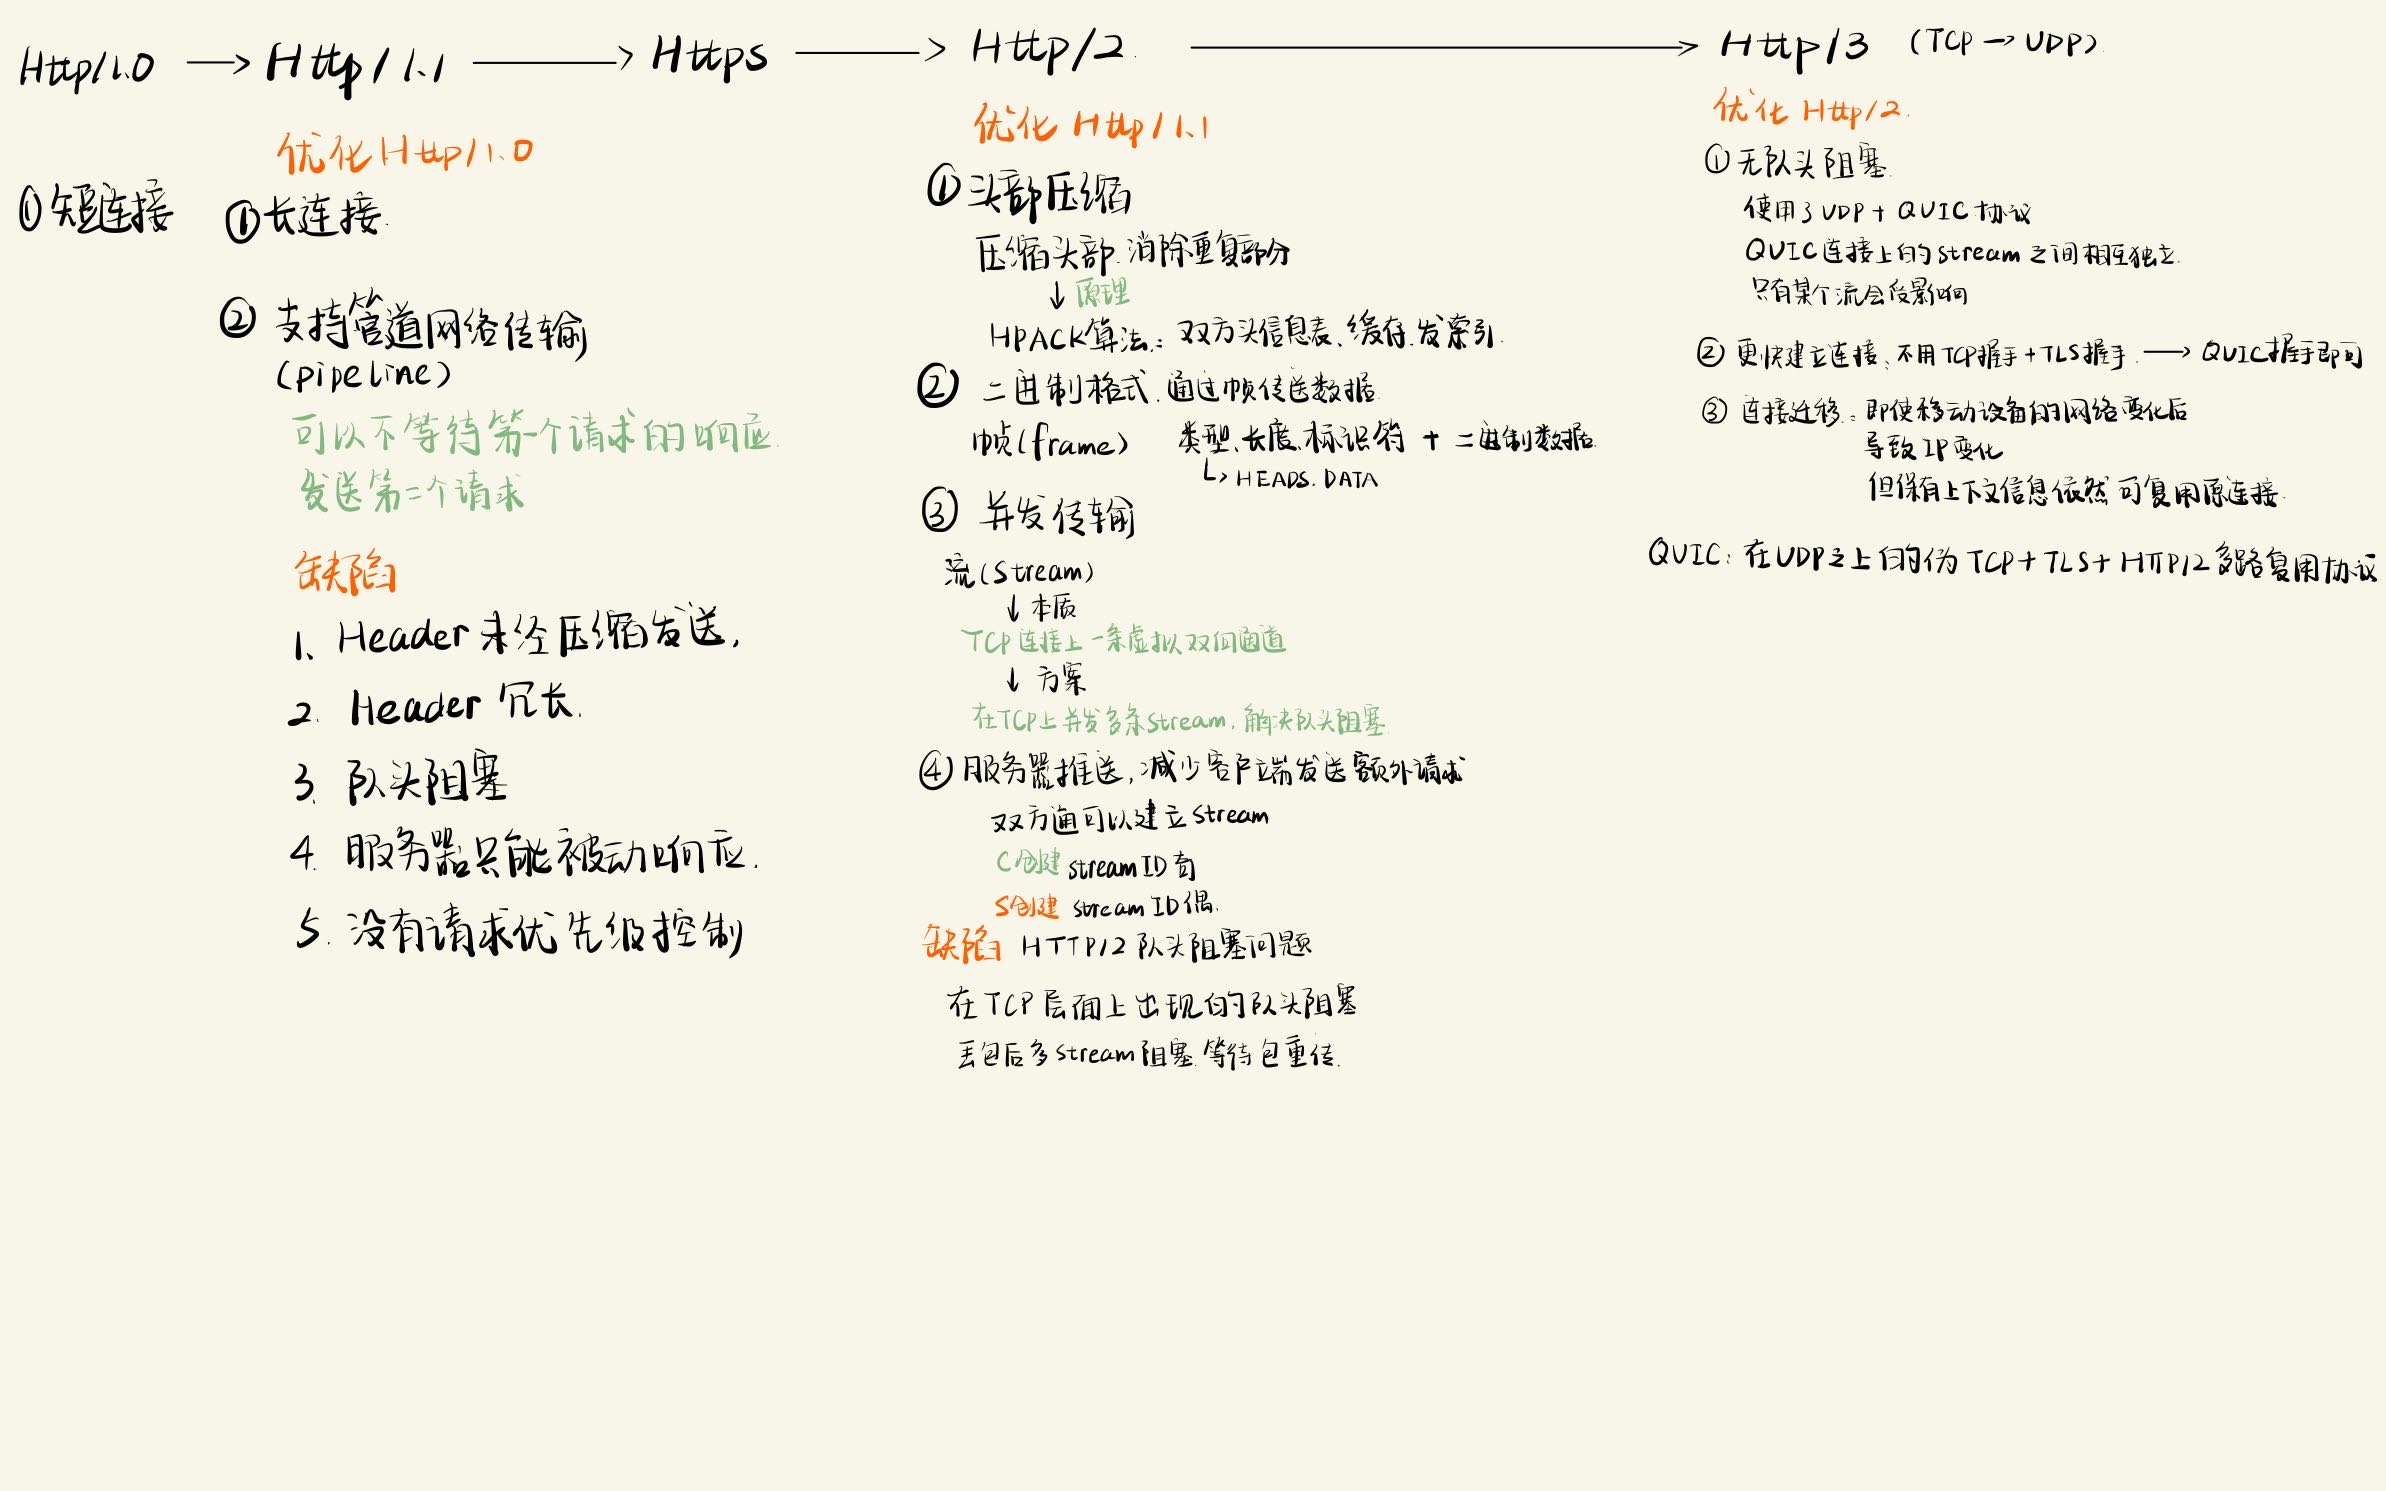 Http/1.0 → Http/1.1 → Https → Http/2 → Http/3 (TCP → UDP)
①短连接
优化Http/1.0
①长连接
② 支持管道网络传输
(pipeline)
可以不等待第一个请求的响应
发送第二个请求
缺陷
1、Header未经压缩发送,
2. Header 冗长.
3. 队头阻塞
4. 服务器只能被动响应.
5. 没有请求优先级控制
优化 Http/1.1
①头部压缩
压缩头部.消除重复部分
↓原理
HPACK算法: 双方头信息表、缓存.发索引.
② 二进制格式.通过帧传送数据
帧(frame) 类型、长度、标识符 + 二进制数据
↳ HEADS. DATA
③ 并发传输
流(Stream)
↓本质
TCP连接上一条虚拟双向通道
↓ 方案
在TCP上并发多条Stream, 解决队头阻塞
④服务器推送,减少客户端发送额外请求
双方通可以建立Stream
C创建 stream ID 奇
S创建 stream ID偶.
缺陷 HTTP/2 队头阻塞问题
在TCP层面上出现的队头阻塞
丢包后多Stream阻塞.等待包重传.
优化 Http/2.
①无队头阻塞
使用了UDP + QUIC协议
QUIC连接上的stream之间相互独立.
只有某个流会受影响
② 更快建立连接、不用TCP握手+TLS握手. → QUIC握手即可
③ 连接迁移: 即使移动设备的网络变化后
导致IP变化
但保有上下文信息依然可复用原连接.
QUIC: 在UDP之上的伪TCP+TLS+HTTP/2多路复用协议